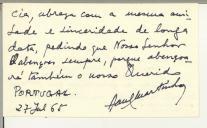 cia, abraça com a mesma ami-
sade e sinceridade de longa
data, pedindo que Nosso Senhor
abençoe sempre, porque abençoa-
rá também o nosso Querido
PORTUGAL.
27 Jul 65